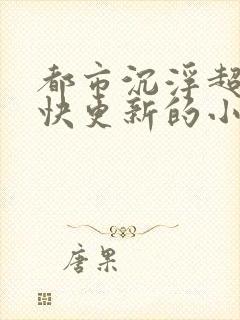 都市沉浮超
快更新的小
唐果